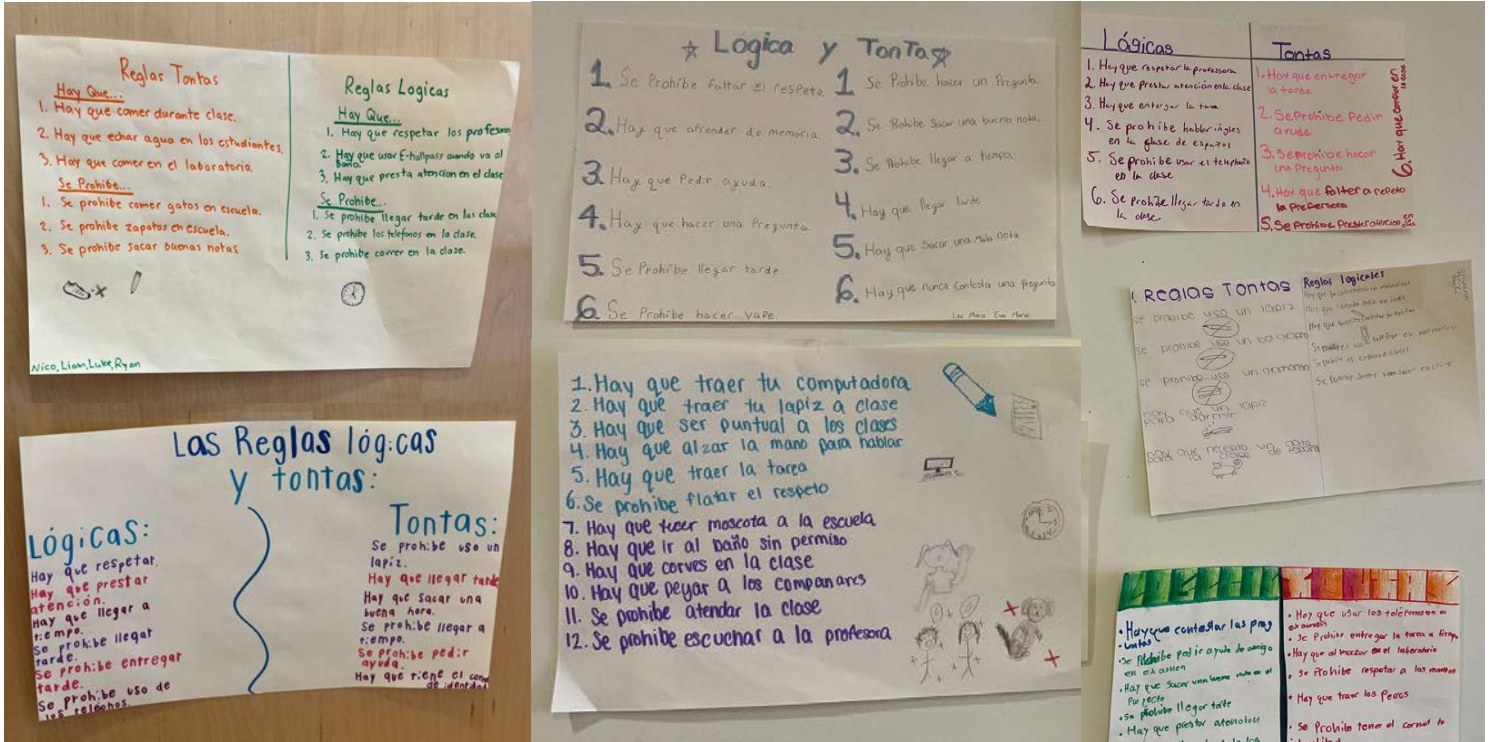 Reglas Tontas
Hay Que...
1. Hay que comer durante clase.
2. Hay que echar agua en los estudiantes.
3. Hay que comer en el laboratorio.
Se Prohibe...
1. Se prohibe comer gatos en escuela.
2. Se prohibe zapatos en escuela.
3. Se prohibe sacar buenas notas
Reglas Logicas
Hay Que...
1. Hay que respetar los profesores
2. Hay que usar E-hallpass cuando va al
baño.
3. Hay que presta atencion en el clase
Se Prohibe...
1. Se prohibe llegar tarde en las clase
2. Se prohibe los telefonos en la clase
3. Se prohibe correr en la clase.
Nico, Liam, Luke, Ryan
Las Reglas lógicas
y tontas:
Lógicas:
Hay que respetar.
Hay que prestar
atención.
Hay que llegar a
tiempo.
Se prohibe llegar
tarde.
Se prohibe entregar
tarde.
Se prohibe uso de
los telephos.
Tontas:
Se prohibe uso un
lapiz.
Hay que llegar tarde
Hay que sacar una
buena hora.
Se prohibe llegar a
tiempo.
Se prohibe pedir
ayuda.
Hay que tiene el
de identidad
Lógica y Tonta
1. Se Prohibe faltar el respeto.
2. Hay que afrender de memoria.
3. Hay que Pedir ayuda.
4. Hay que hacer una Pregunta
5. Se Prohibe llegar tarde
6. Se Prohibe hacer vape.
1 Se Prohibe hacer un Pregunta
2. Se Prohibe Sacar una bueno nota.
3. Se Prohibe llegar a tiempo.
4. Hay que llegar tarde
5. Hay que Sacar una Mala nota
6. Hay que nunca Contesta una pregunta
1. Hay que traer tu computadora
2. Hay que traer tu lapiz a clase
3. Hay que ser puntual a los clases
4. Hay que alzar la mano para hablar
5. Hay que traer la tarea
6. Se prohibe flatar el respeto
7. Hay que moscota a la escuela
8. Hay que ir al baño sin permiso
9. Hay que corves en la clase
10. Hay que peyar a los companares
11. Se prohibe atendar la clase
12. Se prohibe escuchar a la profesora
Lógicas
1. Hay que respetar la professora
2. Hay que prestar atención en la clase
3. Hay que entregar la
4. Se prohibe hablar ingles
en la clase de español
5. Se prohibe usar el
en la clase
6. Se prohibe llegar tarde en
la clase
Tontas
1. Hay que entregar
la tarde.
2. Se Prohibe Pedir
ayude
3. Se Prohibe hacer
una Pregunta
4. Hay que falter a
la
5. Se Prohibe Prestar atencion
6. Hay que comer en
la clase
Reglas Tontas
se prohibe uso un lapiz
se prohibe uso un
se prohibe uso un
hay que un lapiz
para dormir
hay que necesito un gato
para la clase de español
Reglas logicales
LOGICAS
• Hay que contestar las preg
untas
• Se Prohibe pedir ayuda de amigo
en examen
• Hay que sacar una buena nota en el
• Se prohibe llegar
• Hay que prestar atencion
TONTAS
• Hay que usar los teléfonos en el
examen
• Se Prohibe entregar la tarea a tiempo
• Hay que almorzar en el laboratorio
• Se Prohibe respetar a las
Hay que traer los Perros
• Se Prohibe tener el carnet de